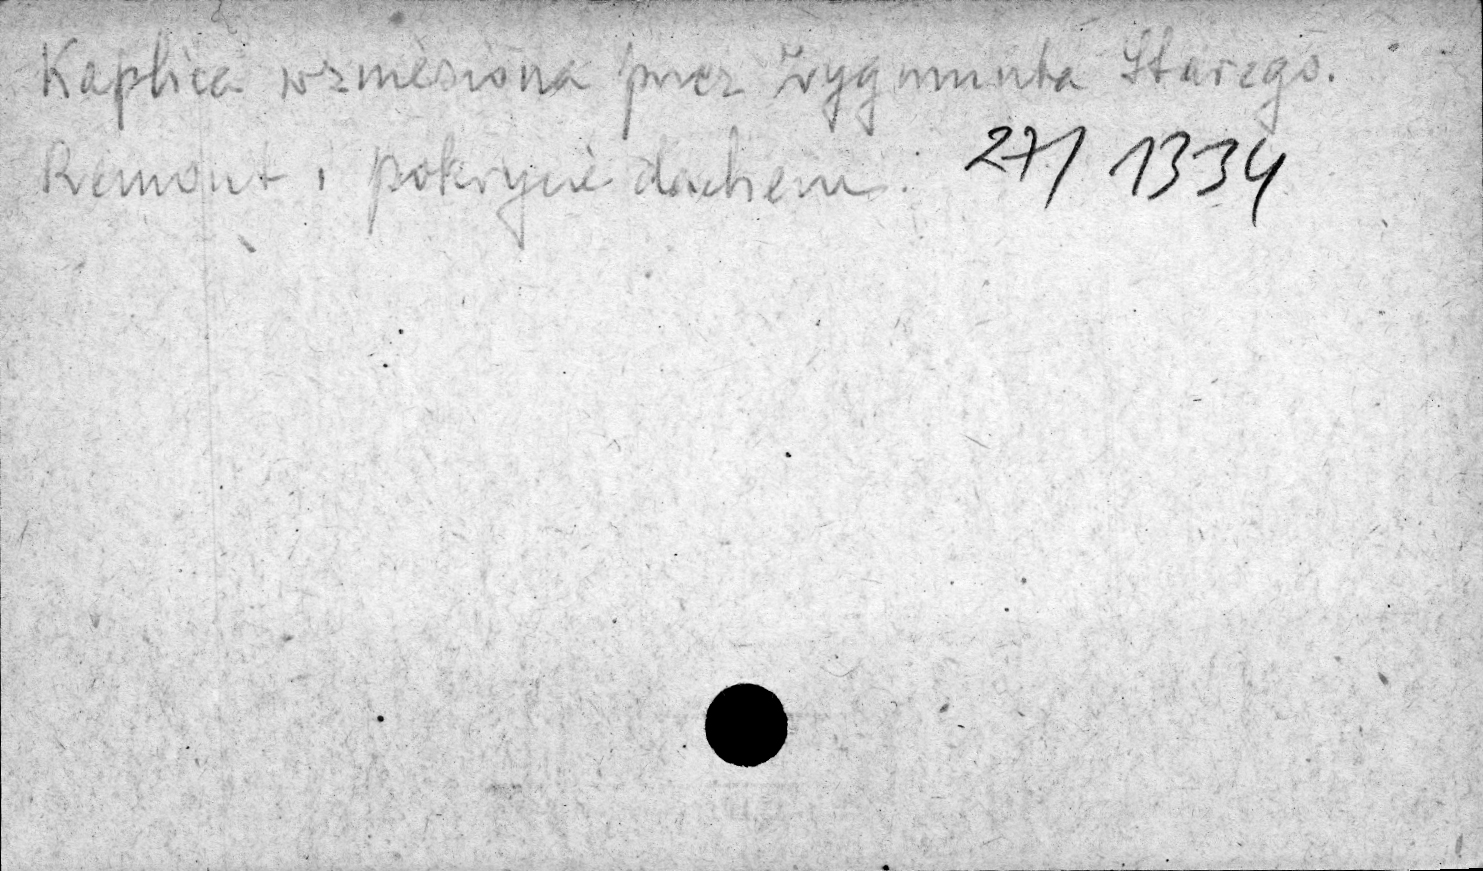 Kaplica wzniesiona przez Zygmunta Starego.
Remont i pokrycie dachem. 27/ 1334